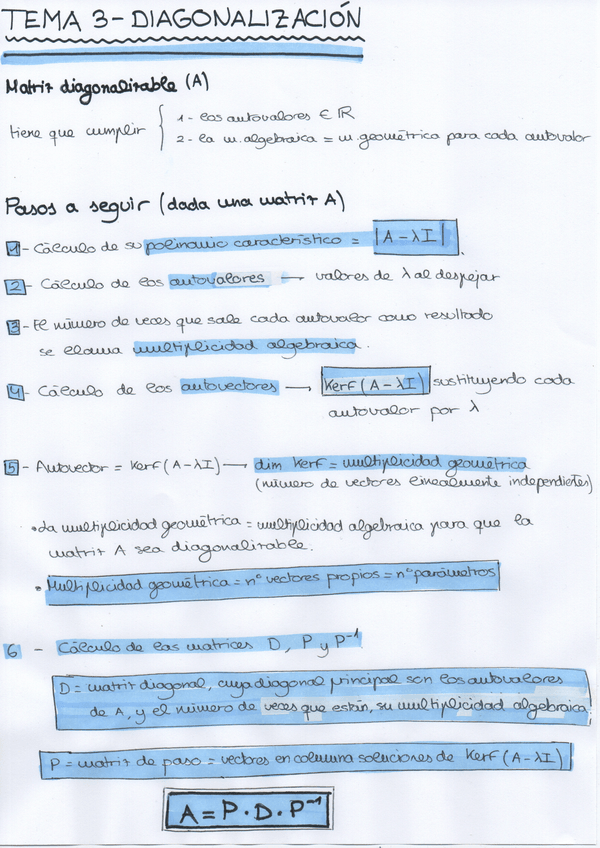 TEMA 3 - DIAGONALIZACIÓN
Matriz diagonalizable (A)
tiene que cumplir { 1 - los autovalores ∈ ℝ
2 - la m. algebraica = m. geométrica para cada autovalor
Pasos a seguir (dada una matriz A)
1 - Cálculo de su polinomio característico = |A - λI|.
2 - Cálculo de los autovalores → valores de λ al despejar
3 - El número de veces que sale cada autovalor como resultado
se llama multiplicidad algebraica.
4 - Cálculo de los autovectores → Kerf (A - λI) sustituyendo cada
autovalor por λ
5 - Autovector = Kerf (A - λI) → dim Kerf = multiplicidad geométrica
(número de vectores linealmente independietes)
• La multiplicidad geométrica = multiplicidad algebraica para que la
matriz A sea diagonalizable.
• Multiplicidad geométrica = nº vectores propios = nº parámetros
6 - Cálculo de las matrices D, P y P⁻¹
D = matriz diagonal, cuya diagonal principal son los autovalores
de A, y el número de veces que están, su multiplicidad algebraica
P = matriz de paso = vectores en columna soluciones de Kerf (A - λI)
A = P · D · P⁻¹